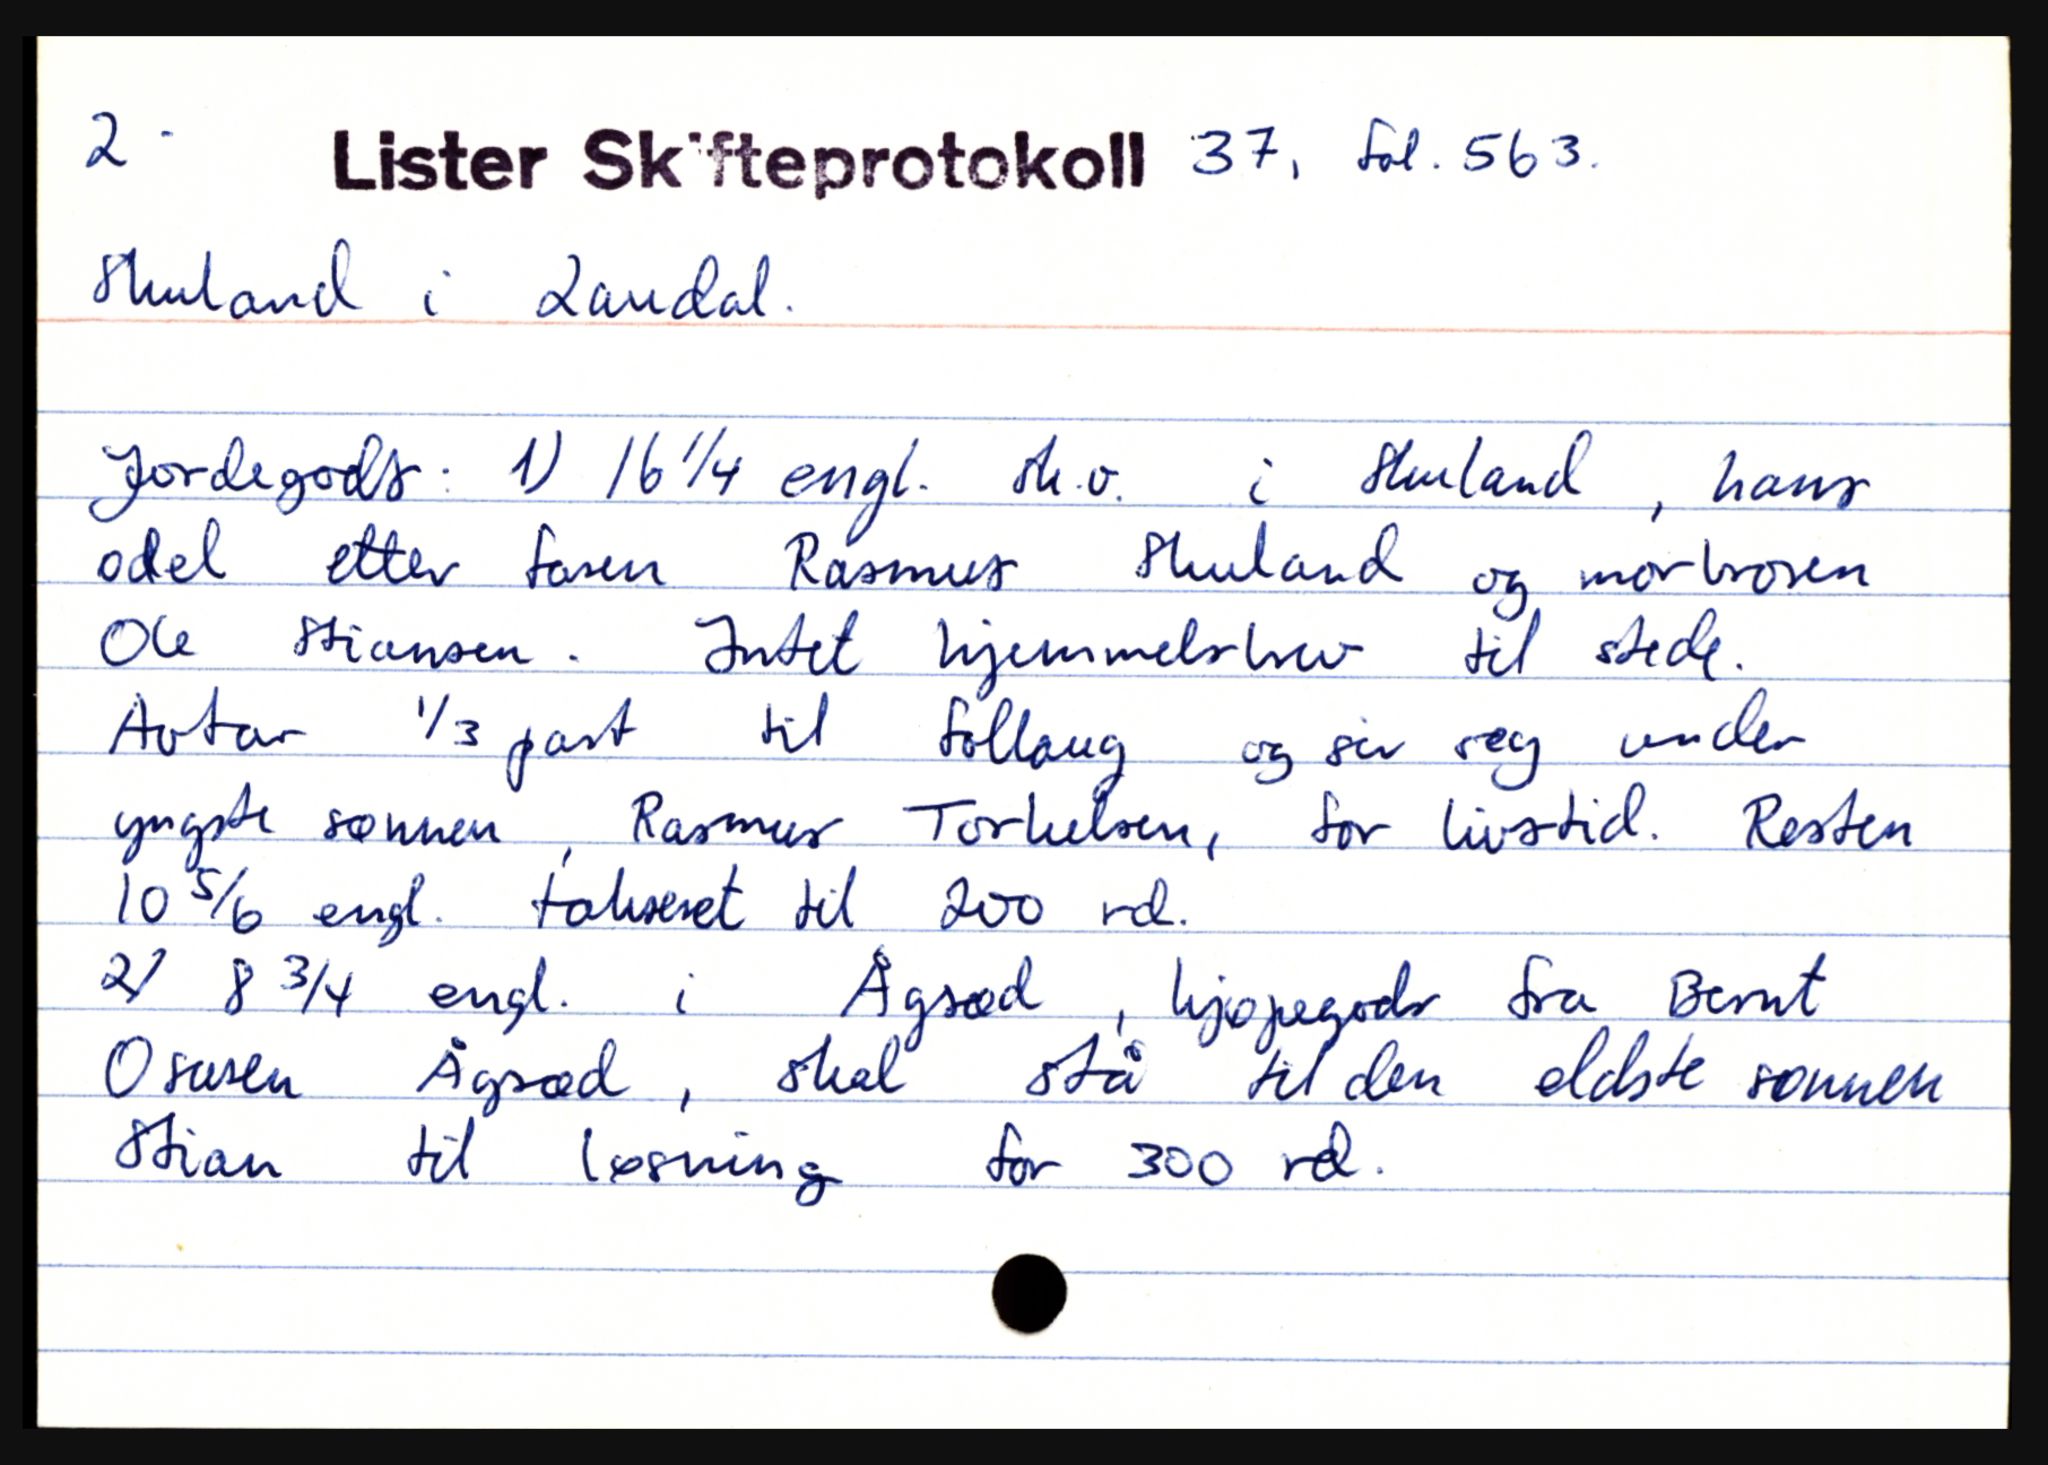 2 - Lister Skifteprotokoll 37, fol. 563.
Skuland i Laudal.
Jordegods: 1) 16 1/4 engl. sk.v. i Skuland, hans
odel etter faren Rasmus Skuland og morbroren
Ole Stiansen. Intet hjemmelsbrev til stede.
Avtar 1/3 part til følaug og sir seg under
yngste sønnen, Rasmus Torkelsen, for livstid. Resten
10 5/6 engl. takseret til 200 rd.
2) 8 3/4 engl. i Ågsæd, kjøpegods fra Bernt
Osusen Ågsæd, skal stå til den eldste sønnen
Stian til løsning for 300 rd.